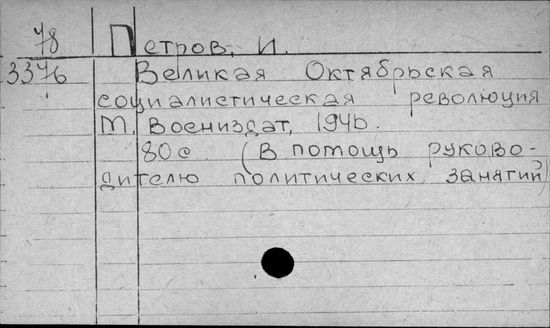 78 Петров, И.
3376 Великая Октябрьская
социалистическая революция
М. Воениздат, 1946.
80с. (В помощь руково-
дителю политических занятий)